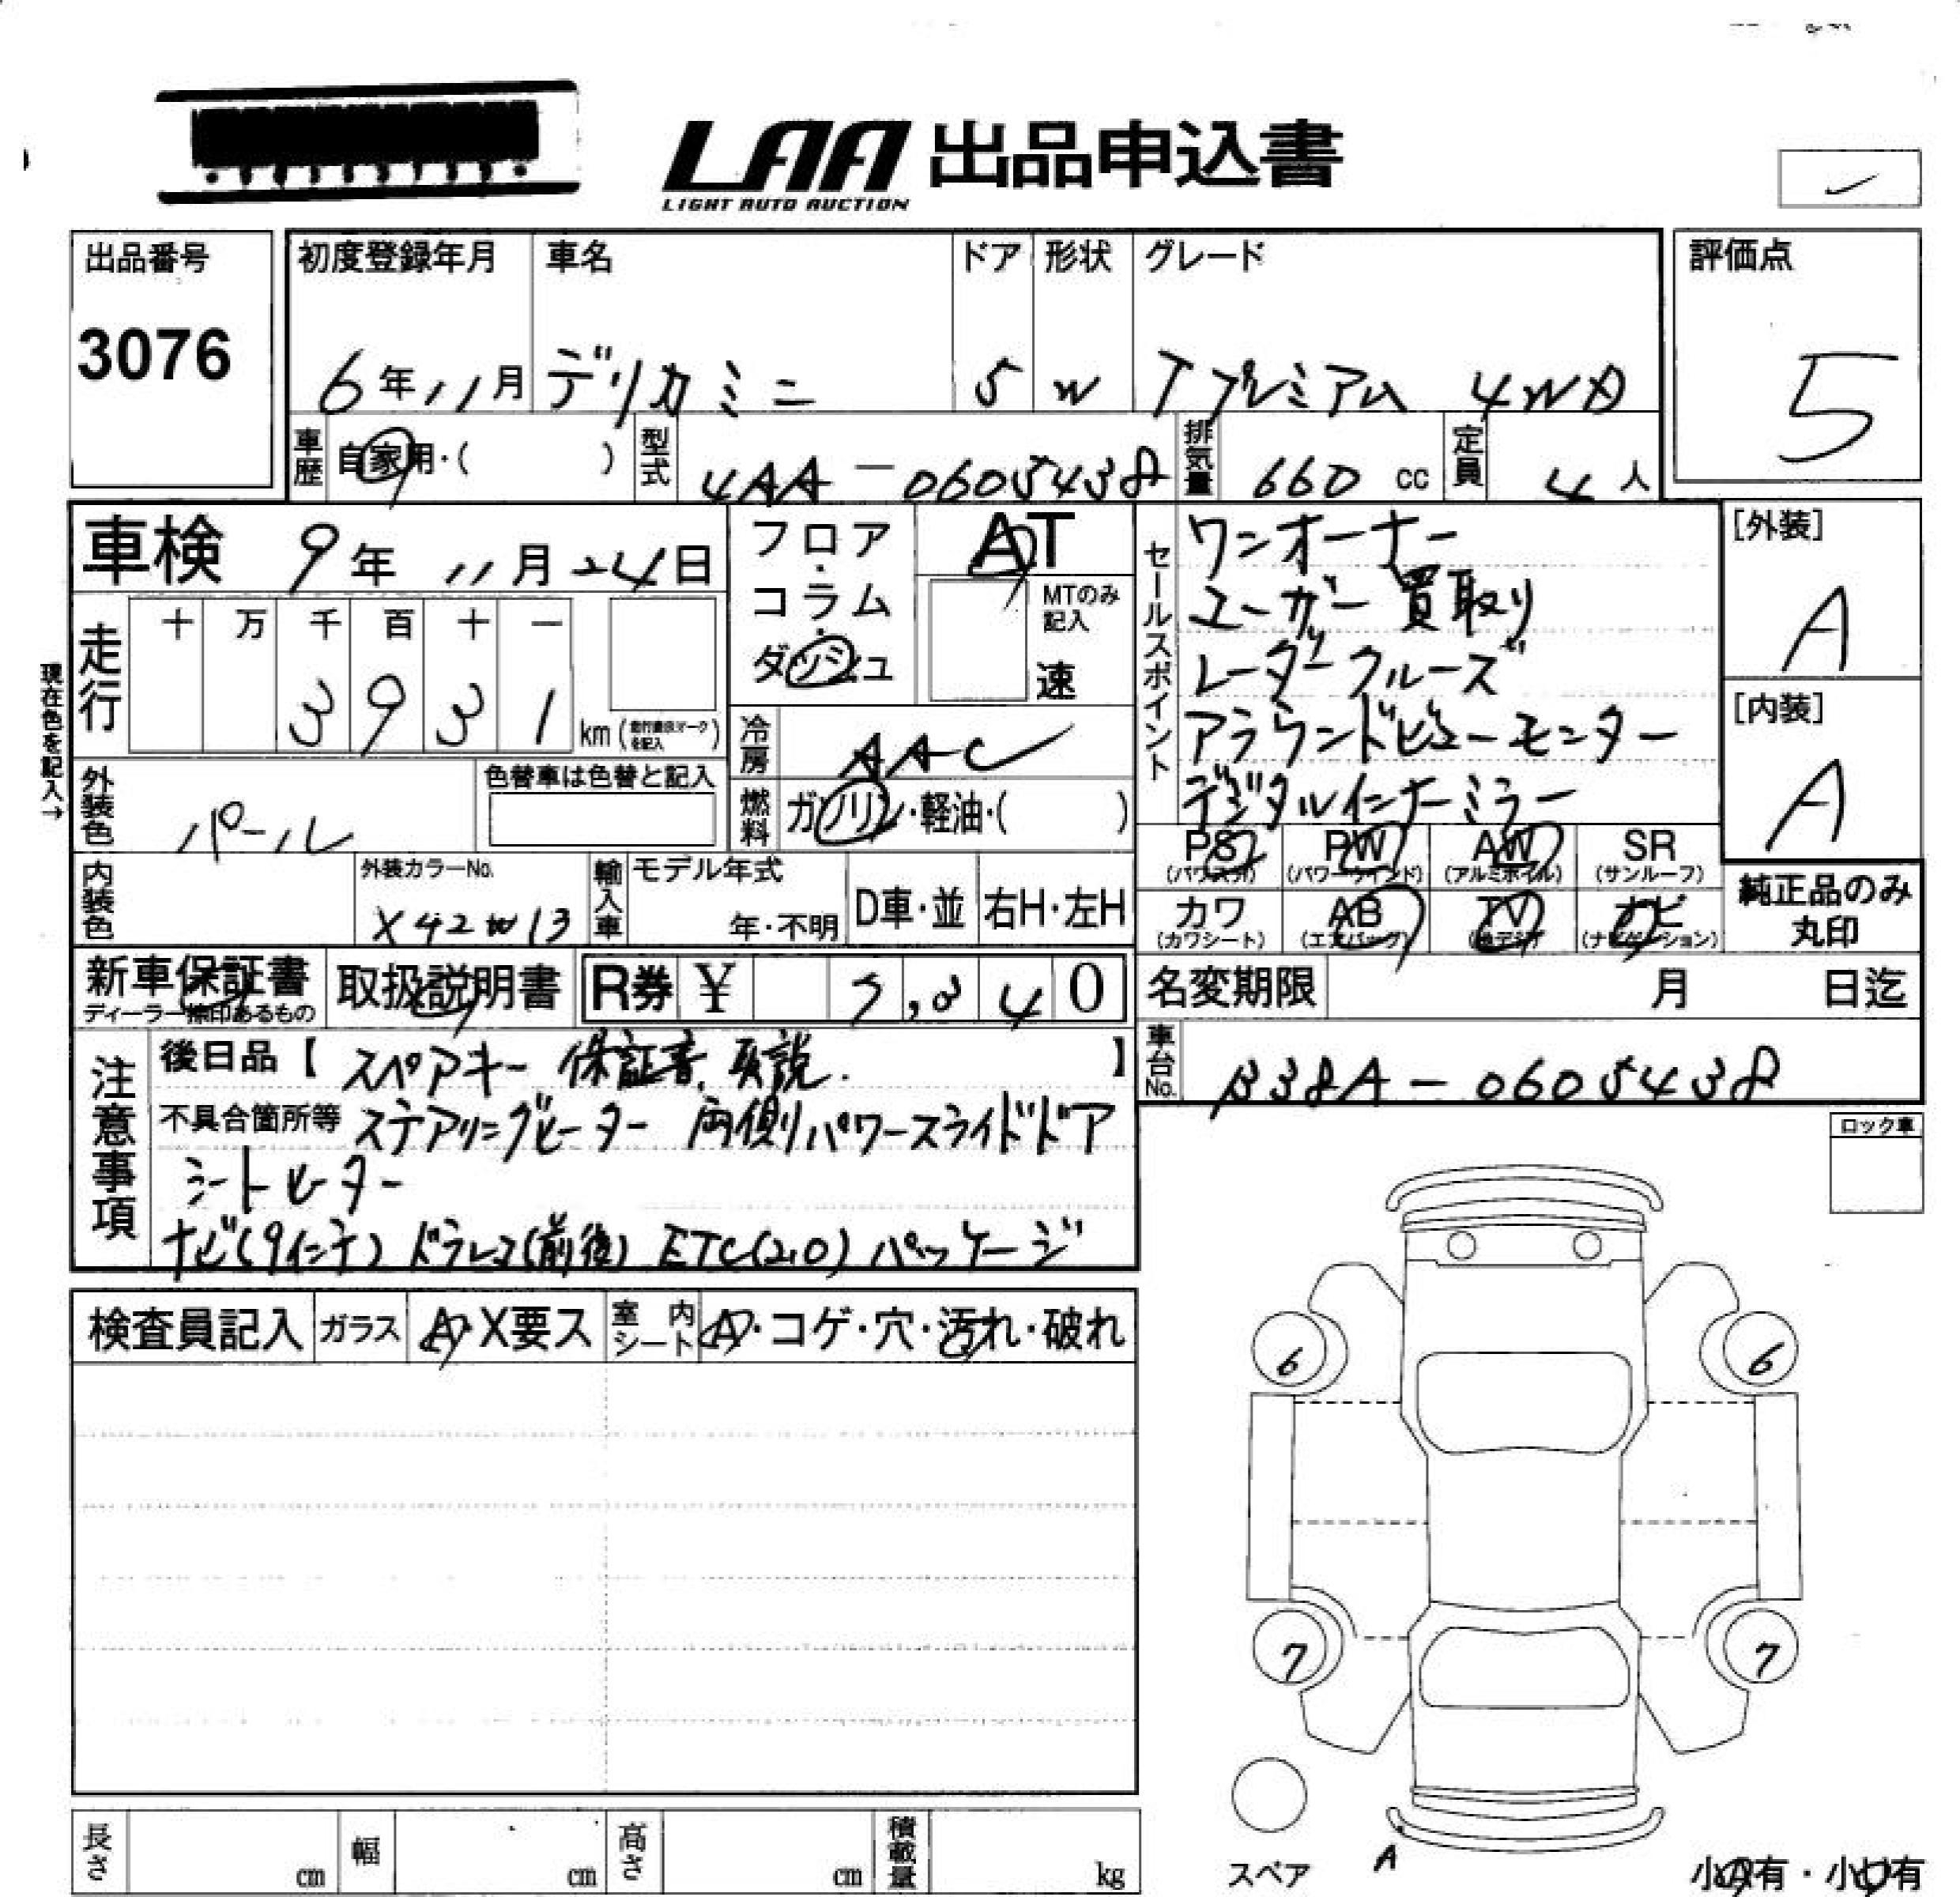 LAA 出品申込書
LIGHT AUTO AUCTION
出品番号
3076
初度登録年月
6年11月
車名
デリカミニ
ドア
5
形状
W
グレード
Tプレミアム 4WD
評価点
5
車歴
自家用・( )
型式
4AA-0605438
排気量
660 cc
定員
4人
車検 9年 11月 24日
走行
十 万 千 百 十 一
3 9 3 1 km
現在色を記入→
フロア・コラム・ダッシュ
AT
MTのみ記入
速
冷房
AAC
燃料
ガソリン・軽油・( )
外装色
パール
色替車は色替と記入
内装色
外装カラーNo.
X42W13
輸入車
モデル年式
年・不明
D車・並
右H・左H
セールスポイント
ワンオーナー
ユーザー買取り
レーダークルーズ
アラウンドビューモニター
デジタルインナーミラー
[外装]
A
[内装]
A
PS (パワステ)
PW (パワーウインド)
AW (アルミホイル)
SR (サンルーフ)
カワ (カワシート)
AB (エアバッグ)
TV (地デジ)
ナビ (ナビゲーション)
純正品のみ丸印
新車保証書
取扱説明書
R券 ¥
0
名変期限 月 日迄
車台No.
B38A-0605438
注意事項
後日品【 スペアキー 保証書、取説. 】
不具合箇所等 ステアリングヒーター 両側パワースライドドア
シートヒーター
ナビ(9インチ) ドラレコ(前後) ETC(2.0) パッケージ
ロック車
検査員記入
ガラス
A・X要ス
室内シート
A・コゲ・穴・汚れ・破れ
6
6
7
7
スペア
A
長さ cm
幅 cm
高さ cm
積載量 kg
小A有・小U有